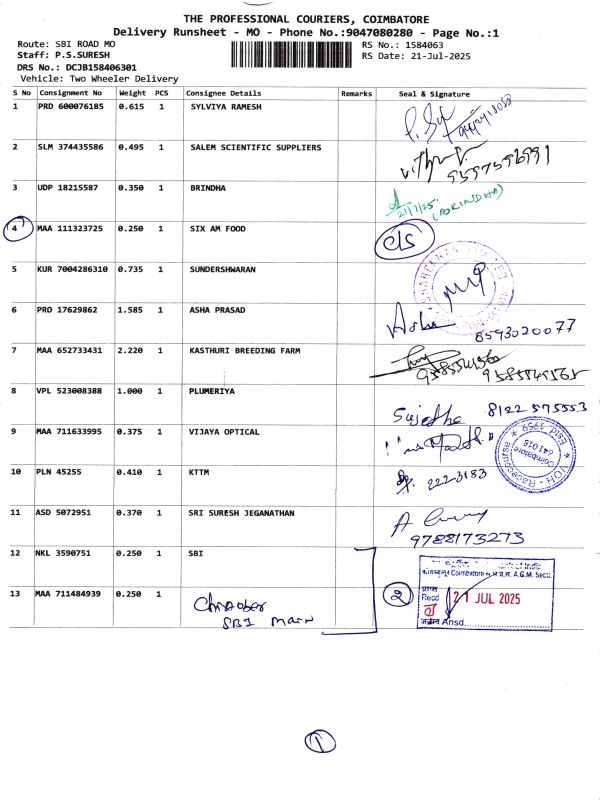 THE PROFESSIONAL COURIERS, COIMBATORE
Delivery Runsheet - MO - Phone No.:9047080280 - Page No.:1
Route: SBI ROAD MO RS No.: 1584063
Staff: P.S.SURESH RS Date: 21-Jul-2025
DRS No.: DCJB158406301
Vehicle: Two Wheeler Delivery
S No Consignment No Weight PCS Consignee Details Remarks Seal & Signature
1 PRD 600076185 0.615 1 SYLVIYA RAMESH
2 SLM 374435586 0.495 1 SALEM SCIENTIFIC SUPPLIERS
3 UDP 18215587 0.350 1 BRINDHA 21/7/25.
4 MAA 111323725 0.250 1 SIX AM FOOD
5 KUR 7004286310 0.735 1 SUNDERSHWARAN
6 PRO 17629862 1.585 1 ASHA PRASAD Asha 8593020077
7 MAA 652733431 2.220 1 KASTHURI BREEDING FARM
8 VPL 523008388 1.000 1 PLUMERIYA Sujetha 8122 575553
9 MAA 711633995 0.375 1 VIJAYA OPTICAL
VOH - Racecourse
Coimbatore
641018
Estd. 1959
10 PLN 45255 0.410 1 KTTM 222-3183
11 ASD 5072951 0.370 1 SRI SURESH JEGANATHAN 9788173273
12 NKL 3590751 0.250 1 SBI
13 MAA 711484939 0.250 1
SBI Main
2
Coimbatore A.G.M. Sectt.
Recd 21 JUL 2025
Ansd.
1